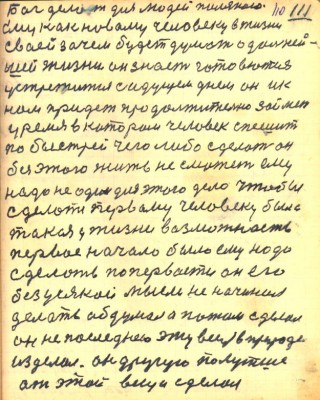 Бог делает для людей помяного.
Ему как новому человеку в жизни
своей зачем будет думать о дальней-
шей жизни он знает готовится
устретится с идущем днем он и к
нам придет продолжительно займет
уремя в котором человек спешит
по быстрей чего либо сделать он
без этого жить не сможет ему
надо не один для этого дело чтобы
сделоти первому человеку была
такая у жизни возможность
первое начало было ему надо
сделать поперваети он его
без усякой мысли не начинал
делать обдумал а потом сделал
он не последнею эту вещь в природе
изделал. он другую получше
от этой вещи сделал
111